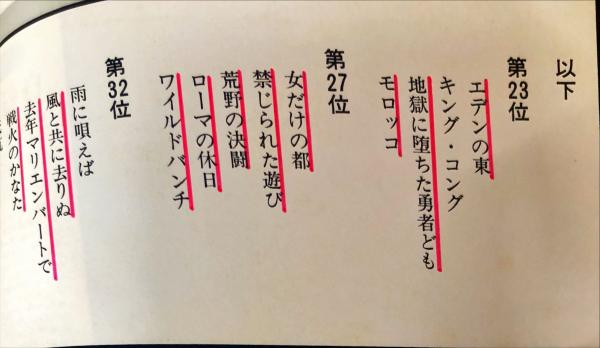 以下
第23位
エデンの東
キング・コング
地獄に堕ちた勇者ども
モロッコ
第27位
女だけの都
禁じられた遊び
荒野の決闘
ローマの休日
ワイルドバンチ
第32位
雨に唄えば
風と共に去りぬ
去年マリエンバートで
戦火のかなた